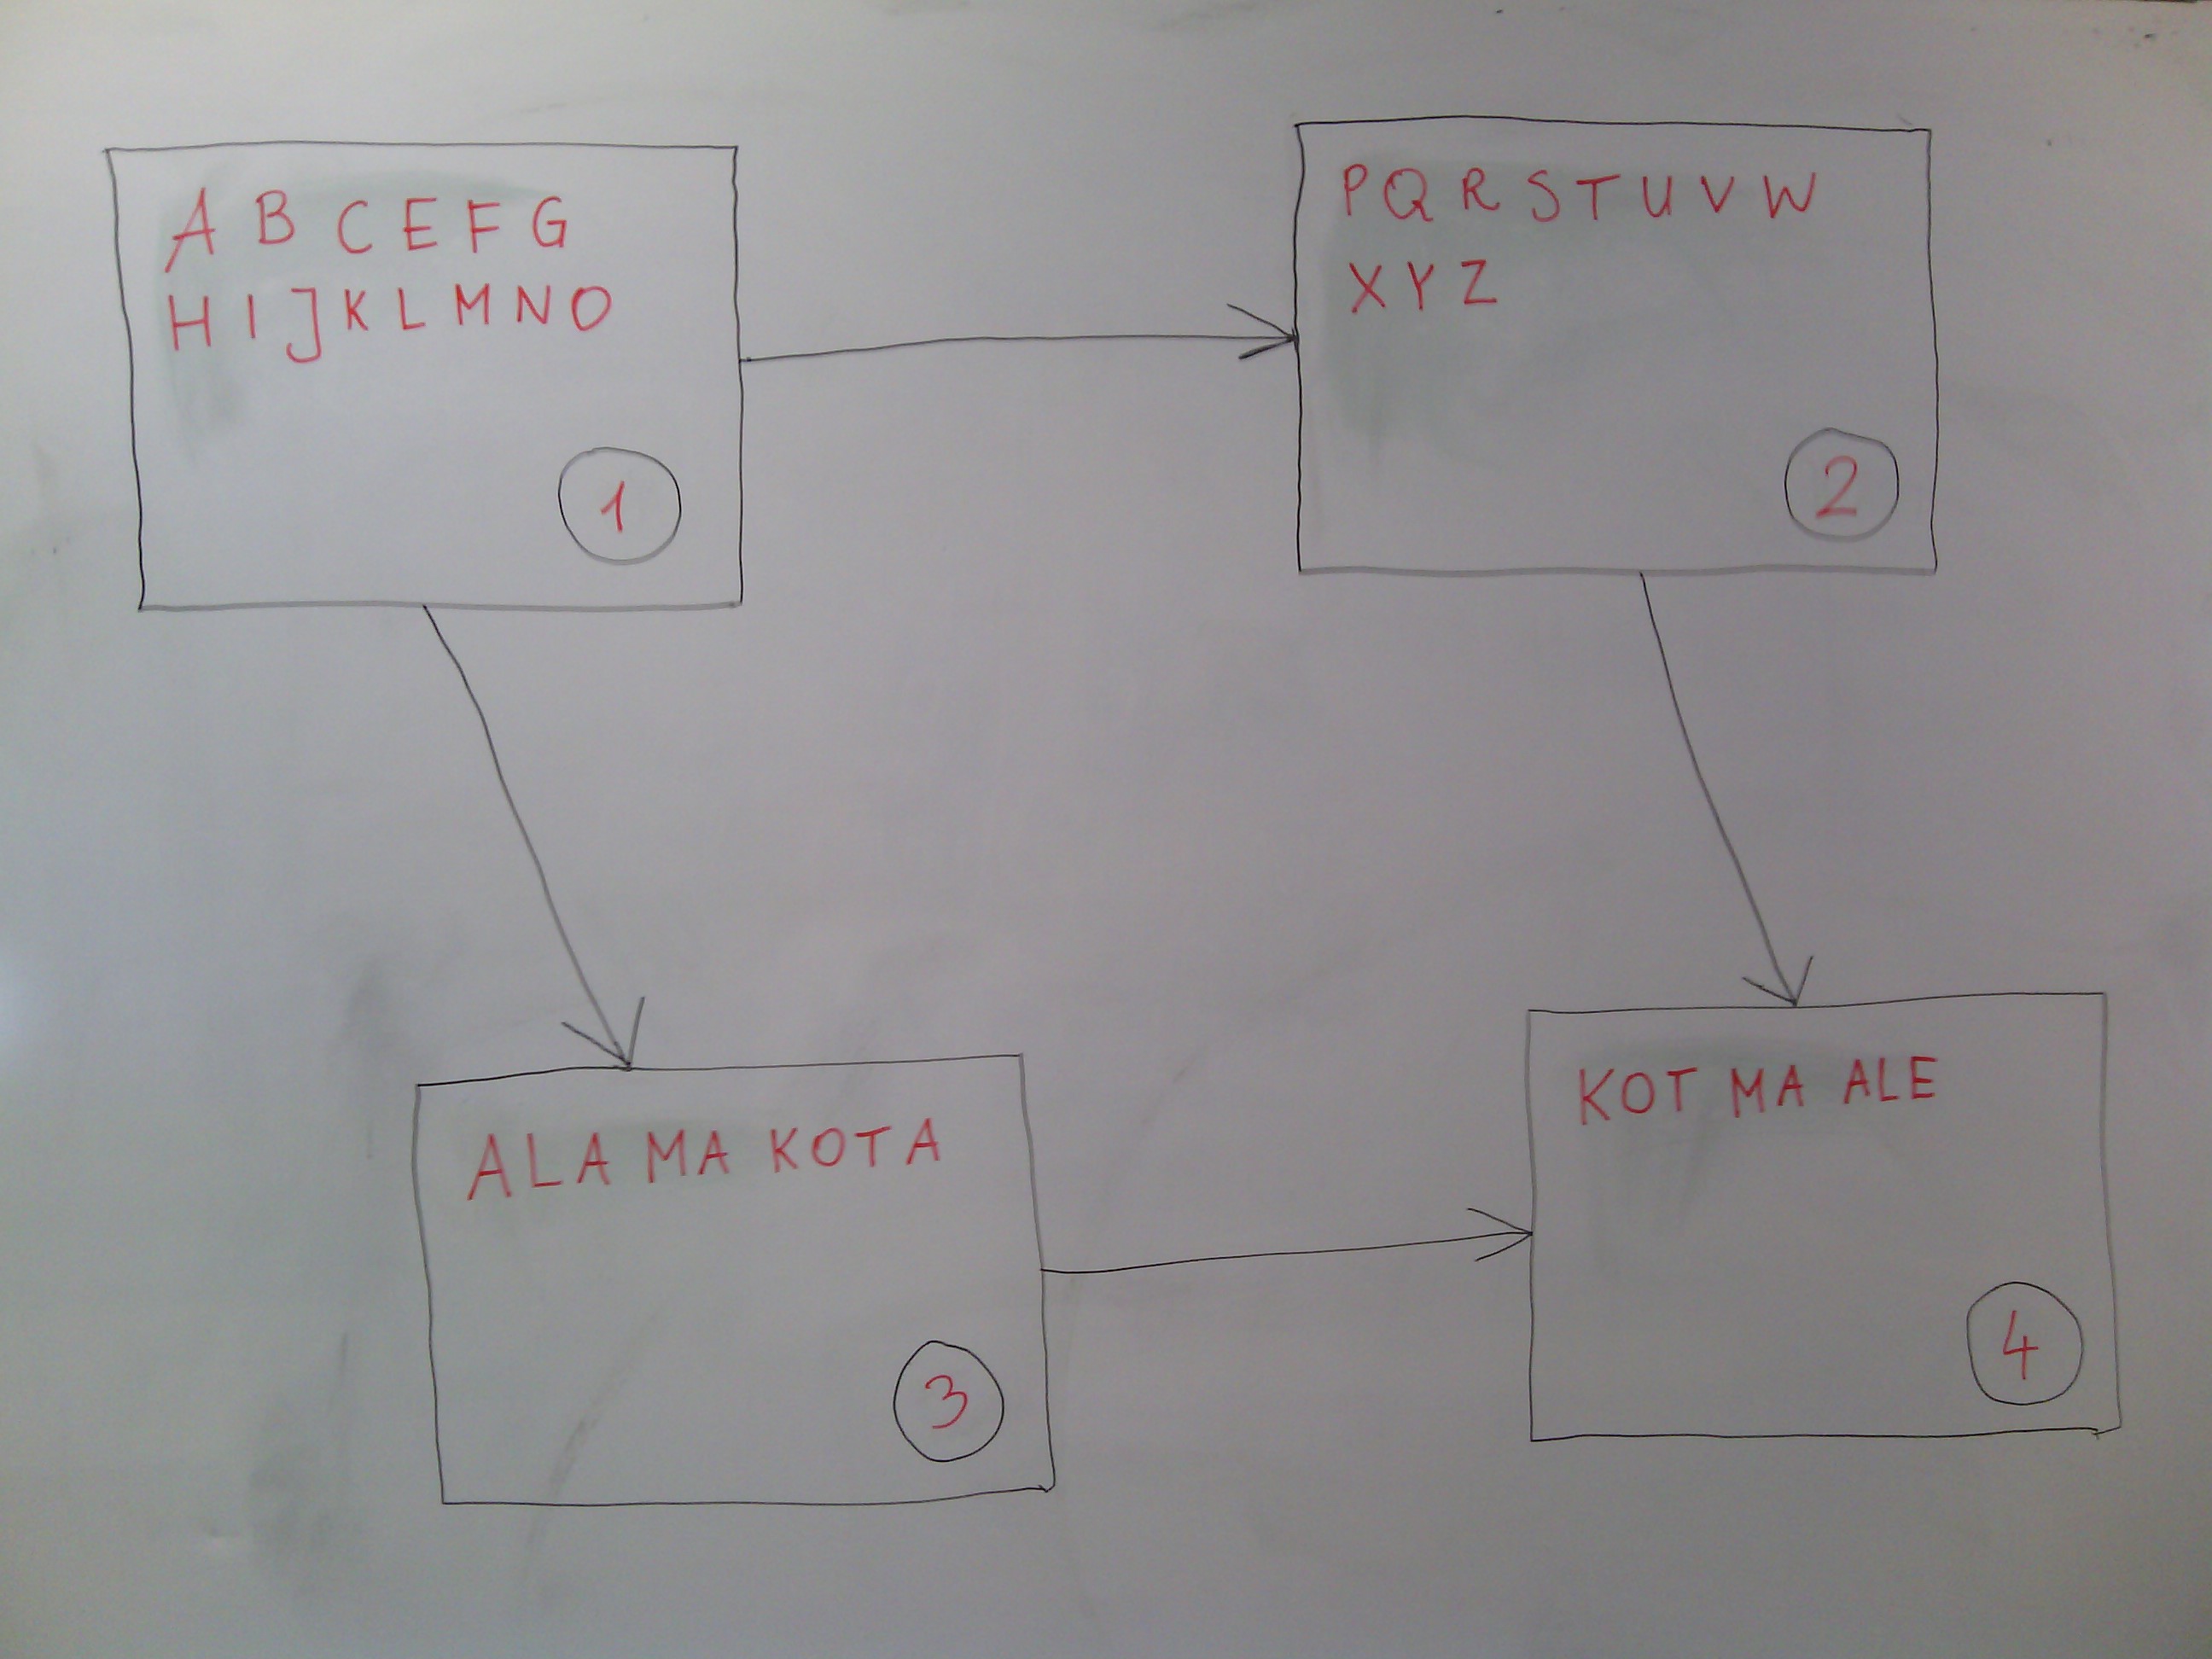 A B C E F G
H I J K L M N O
1
P Q R S T U V W
X Y Z
2
ALA MA KOTA
3
KOT MA ALE
4